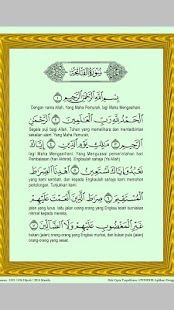 سُورَةُ الفَاتِحَةِ
بِسْمِ اللَّهِ الرَّحْمَٰنِ الرَّحِيمِ ۝١
Dengan nama Allah, Yang Maha Pemurah, lagi Maha Mengasihani
الْحَمْدُ لِلَّهِ رَبِّ الْعَالَمِينَ ۝٢ الرَّحْمَٰنِ
Segala puji bagi Allah, Tuhan yang memelihara dan mentadbirkan
sekalian alam. Yang Maha Pemurah,
الرَّحِيمِ ۝٣ مَالِكِ يَوْمِ الدِّينِ ۝٤ إِيَّاكَ
lagi Maha Mengasihani. Yang Menguasai pemerintahan hari
Pembalasan (hari Akhirat). Engkaulah sahaja (Ya Allah)
نَعْبُدُ وَإِيَّاكَ نَسْتَعِينُ ۝٥ اهْدِنَا الصِّرَاطَ
yang kami sembah, dan kepada Engkaulah sahaja kami memohon
pertolongan. Tunjukilah kami
الْمُسْتَقِيمَ ۝٦ صِرَاطَ الَّذِينَ أَنْعَمْتَ عَلَيْهِمْ
jalan yang lurus. Iaitu jalan orang-orang yang Engkau telah kurniakan
nikmat kepada mereka,
غَيْرِ الْمَغْضُوبِ عَلَيْهِمْ وَلَا الضَّالِّينَ ۝٧
bukan (jalan) orang-orang yang Engkau murkai, dan bukan pula (jalan)
orang-orang yang sesat.